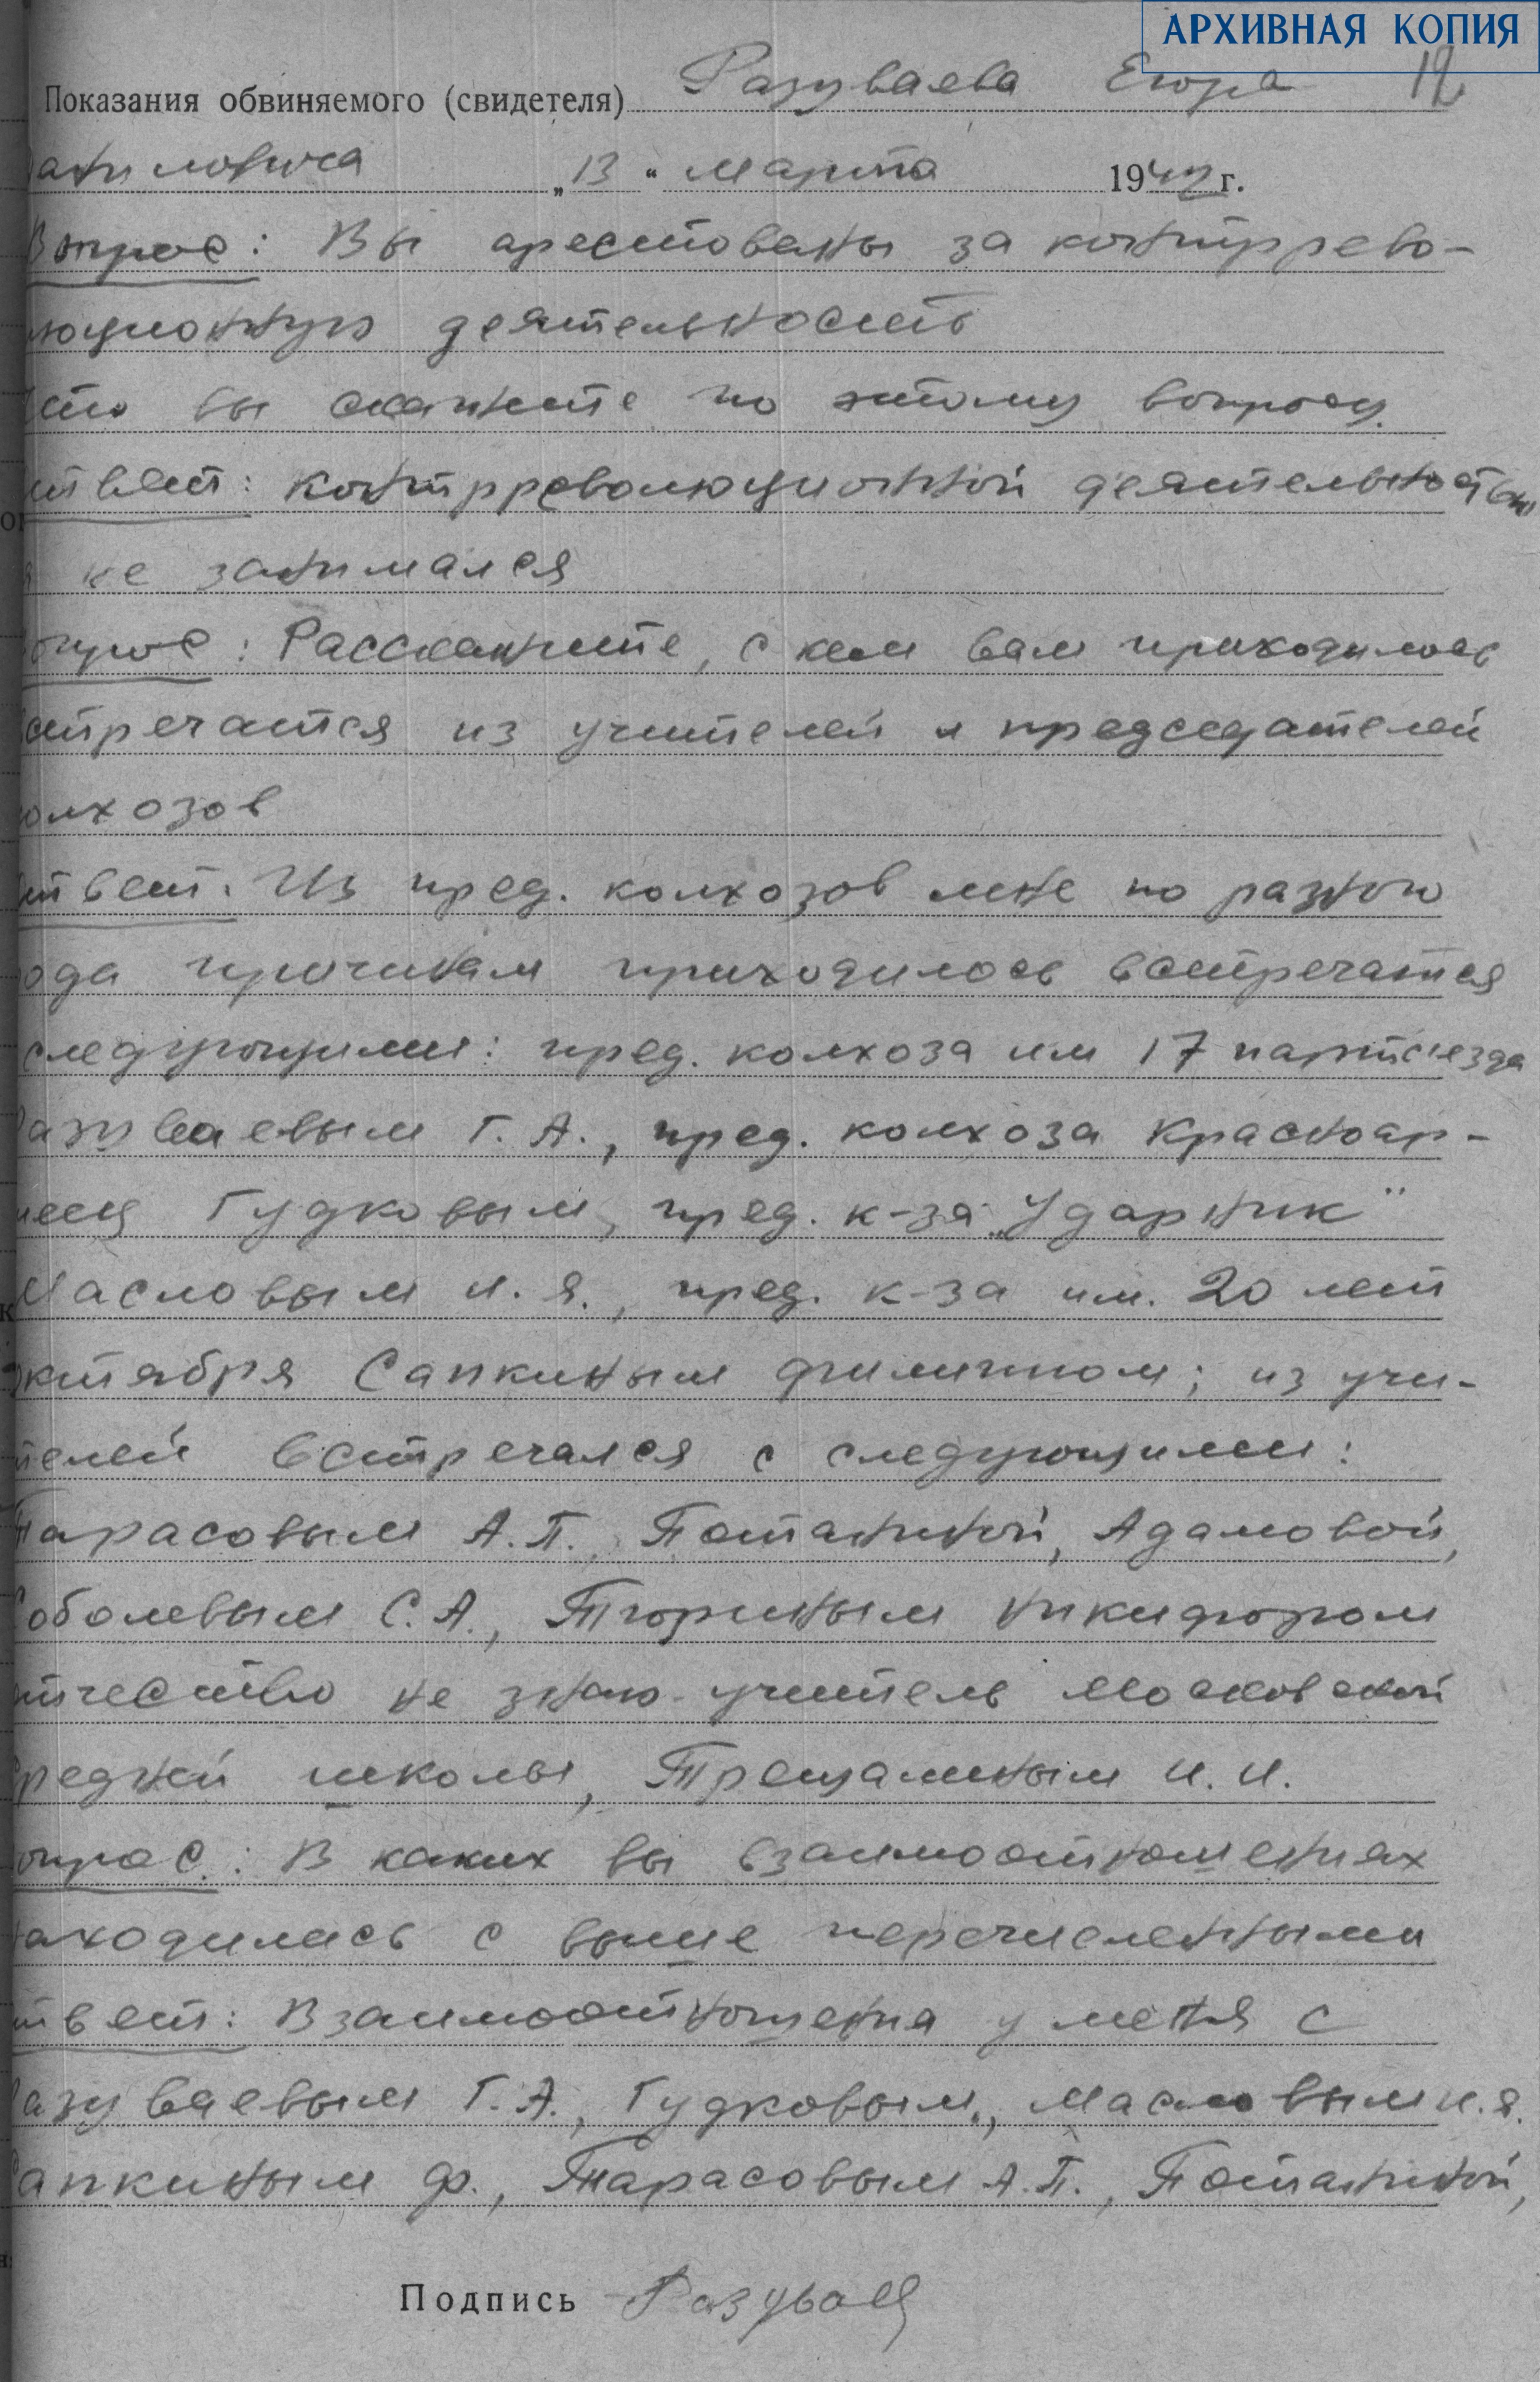 АРХИВНАЯ КОПИЯ
12
Показания обвиняемого (свидетеля) Разуваева Егора
аниловича „13“ марта 1942 г.
Вопрос: Вы арестованы за контррево-
люционную деятельность
Что вы скажите по этому вопросу.
Ответ: контрреволюционной деятельностью
я не занимался
Вопрос: Расскажите, с кем вам приходилось
встречатся из учителей и председателей
колхозов
Ответ. Из пред. колхозов мне по разного
рода причинам приходилось встречатся
следующими: пред. колхоза им 17 партс'езда
Разуваевым Г. А., пред. колхоза Красноар-
меец Гудковым, пред. к-за „Ударник"
Масловым И. Я., пред. к-за им. 20 лет
октября Сапкиным Филиппом; из учи-
телей встречался с следующими:
Тарасовым А. П., Потаниной, Адамовой,
Соболевым С. А., Тюриным Никифором
отчество не знаю учитель Московской
средней школы, Трещалиным И. И.
Вопрос: В каких вы взаимоотношениях
находились с выше перечисленными
Ответ: Взаимоотношения у меня с
Разуваевым Г. А., Гудковым., Масловым И. Я.
Сапкиным Ф., Тарасовым А. П., Потаниной,
Подпись Разуваев